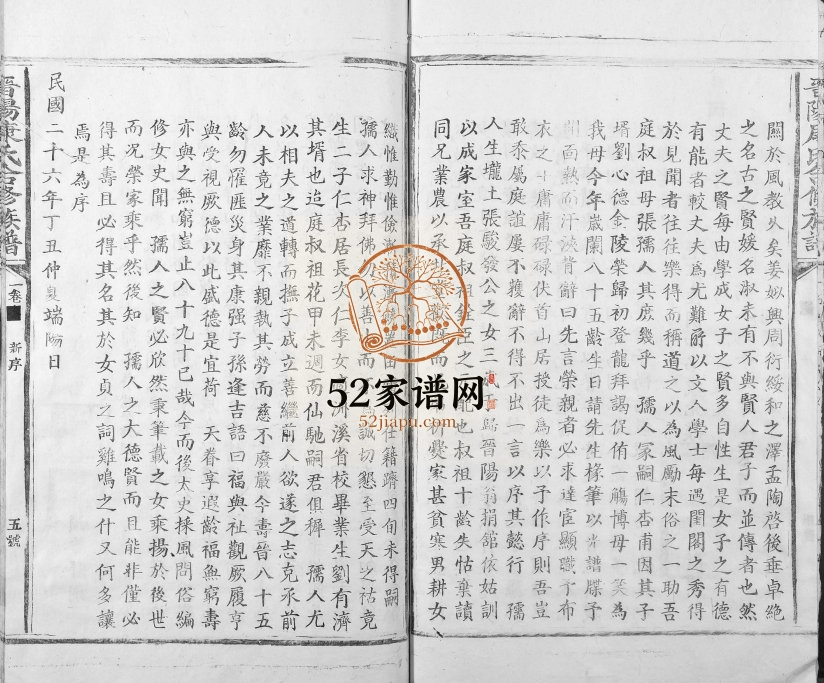 晋陽康氏合修族譜
關於風教久矣姜姒興周衍綏和之澤孟陶啓後垂卓絶
之名古之賢媛名淑未有不與賢人君子而並傳者也然
丈夫之賢每由學成女子之賢多自性生是女子之有德
有能者較丈夫爲尤難爵以文人學士每遇閨閣之秀得
於見聞者往往樂得而稱道之以為風勵末俗之一助吾
庭叔祖母張孺人其庶幾乎 孺人冢嗣仁杏甫因其子
壻劉心德金陵榮歸初登龍拜謁促侑一觴博母一笑為
我母今年歲闌八十五齡生日請先生椽筆以光譜牒予
面熱而汗背辭曰先言榮親者必求達宦顯職予布
衣之士庸庸碌碌伏首山居授徒為樂以予作序則吾豈
敢忝屬庭誼屢不獲辭不得不出一言以序其懿行 孺
人生壠土張駿發公之女三 歸晉陽翁捐舘依姑訓
以成家室吾庭叔祖 臣之 也叔祖十齡失怙棄讀
同兄業農以承 而 析爨家甚貧寒男耕女
織惟勤惟儉 籍躋四旬未得嗣
孺人求神拜佛 以善 而 誠切懇至受天之祜竟
生二子仁杏居長次仁李女 溪省校畢業生劉有濟
其壻也迨庭叔祖花甲未週而仙馳嗣君俱穉 孺人尤
以相夫之道轉而撫子成立善繼前人欲遂之志克承前
人未竟之業靡不親執其勞而慈不廢嚴今壽晉八十五
齡勿罹匪災身其康强子孫逢吉語曰福與祉觀厥履亨
與受視厥德以此盛德是宜荷 天眷享遐齡福無窮壽
亦與之無窮豈止八十九十已哉今而後太史採風問俗編
修女史聞 孺人之賢必欣然秉筆載之女乘揚於後世
而況榮家乘乎然後知 孺人之大德賢而且能非僅必
得其壽且必得其名其於女貞之詞雞鳴之什又何多讓
焉是為序
民國二十六年丁丑仲夏端陽日
晋陽康氏合修族譜
一卷
新序
五號
52家谱网
52jiapu.com